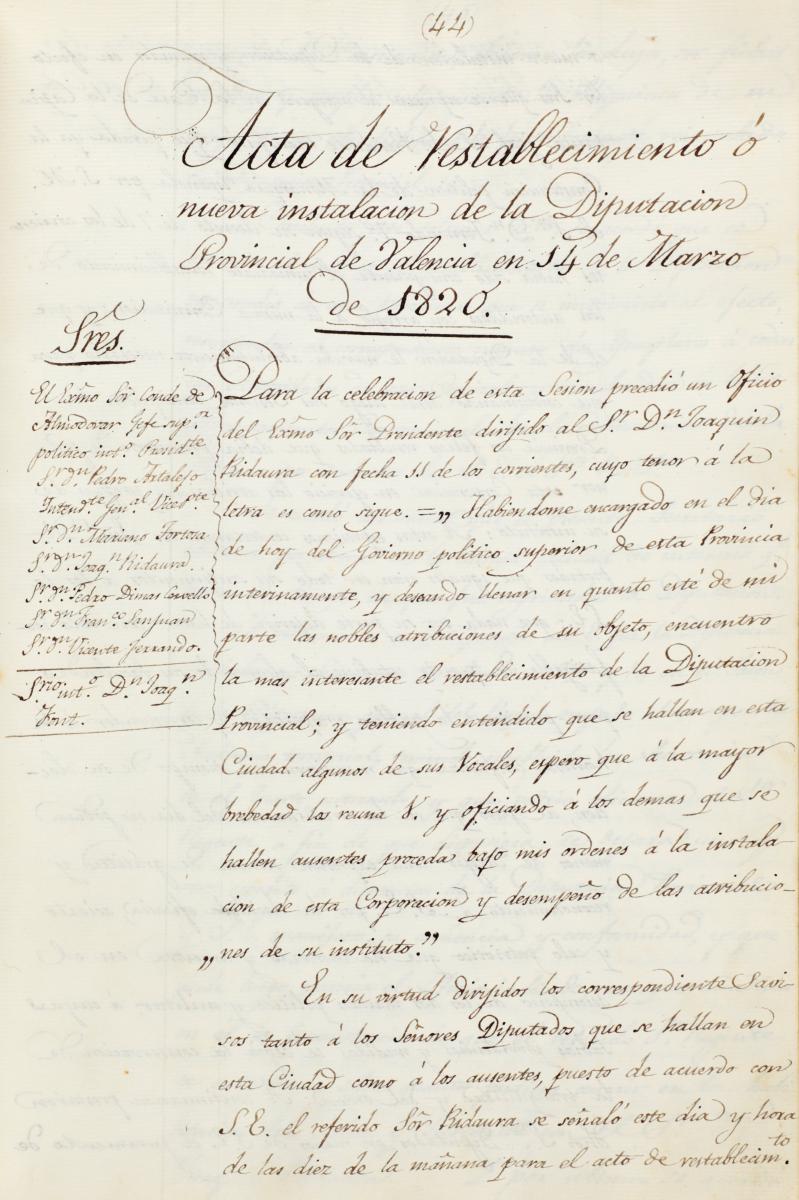 (44)
Acta de restablecimiento ó
nueva instalacion de la Diputacion
Provincial de Valencia en 14 de Marzo
de 1820.
Sres.
El Exmo Sõr Conde de
Almodovar Jefe sup.or
politico int.o Presid.te
Sr. dn. Pedro Artalejo
Intend.te Gen.al Vicep.te
Sr. dn. Mariano Tortosa
Sr. dn. Joaq.n Ridaura.
Sr. dn. Pedro Dimas Corvello
Sr. dn. Fran.co Sanjuan
Sr. dn. Vicente Ferrando.
Srio. int.o Dn. Joaq.n
Font.
Para la celebracion de esta Sesion precedió un Oficio
del Exmo Sõr Presidente dirijido al S.r D.n Joaquin
Ridaura con fecha 11 de los corrientes, cuyo tenor á la
letra es como sigue. = „ Habiendome encargado en el dia
de hoy del Govierno politico superior de esta Provincia
interinamente, y deseando llenar en quanto esté de mi
parte las nobles atribuciones de su objeto, encuentro
la mas interesante el restablecimiento de la Diputacion
Provincial; y teniendo entendido que se hallan en esta
Ciudad algunos de sus Vocales, espero que á la mayor
brebedad los reuna V. y oficiando á los demas que se
hallen ausentes proceda bajo mis ordenes á la instala-
cion de esta Corporacion y desempeño de las atribucio-
„nes de su instituto.”
En su virtud dirijidos los correspondiente Savi-
sos tanto á los Señores Diputados que se hallan en
esta Ciudad como á los ausentes, puesto de acuerdo con
S.E. el referido Sõr Ridaura se señaló este dia y hora
de las diez de la mañana para el acto de restablecim.to